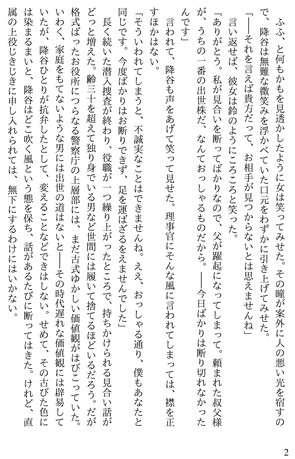 ふふ、と何もかもを見透かしたように女は笑ってみせた。その瞳が案外に人の悪い光を宿すの
で、降谷は無難な微笑みを浮かべていた口元をわずかに引き上げてみせた。
「――それを言えば貴方だって、お相手が見つからないとは思えませんね」
言い返せば、彼女は鈴のようにころころと笑った。
「ありがとう。私が見合いを断ってばかりなので、父が躍起になってしまって。頼まれた叔父様
が、うちの一番の出世株だ、なんておっしゃるものだから。――今日ばかりは断り切れなかった
んです」
言われて、降谷も声をあげて笑って見せた。理事官にそんな風に言われてしまっては、襟を正
すほかはない。
「そういわれてしまうと、不誠実なことはできませんね。ええ、おっしゃる通り、僕もあなたと
同じです。今度ばかりはお断りできず、足を運ばざるをえませんでした」
長く続いた潜入捜査が終わり、役職が一つ繰り上がったところで、持ちかけられる見合い話が
どっと増えた。齢三十を超えて独り身でいる男など世間には履いて捨てるほどいるだろう。だが
格式ばったお役所につらなる警察庁の上層部には、まだ古式ゆかしい価値観がはびこっていた。
いわく、家庭をもてないような男には出世の道はないと――その時代遅れな価値観には辟易して
いたが、降谷ひとりが抗弁したとして、変えることなどできはしない。せめて、その古びた色に
は染まるまいと、降谷はどこ吹く風という態を保ち、話があるたびに断ってはきた。けれど、直
属の上役じきじきに申し入れられては、無下にするわけにはいかない。
2